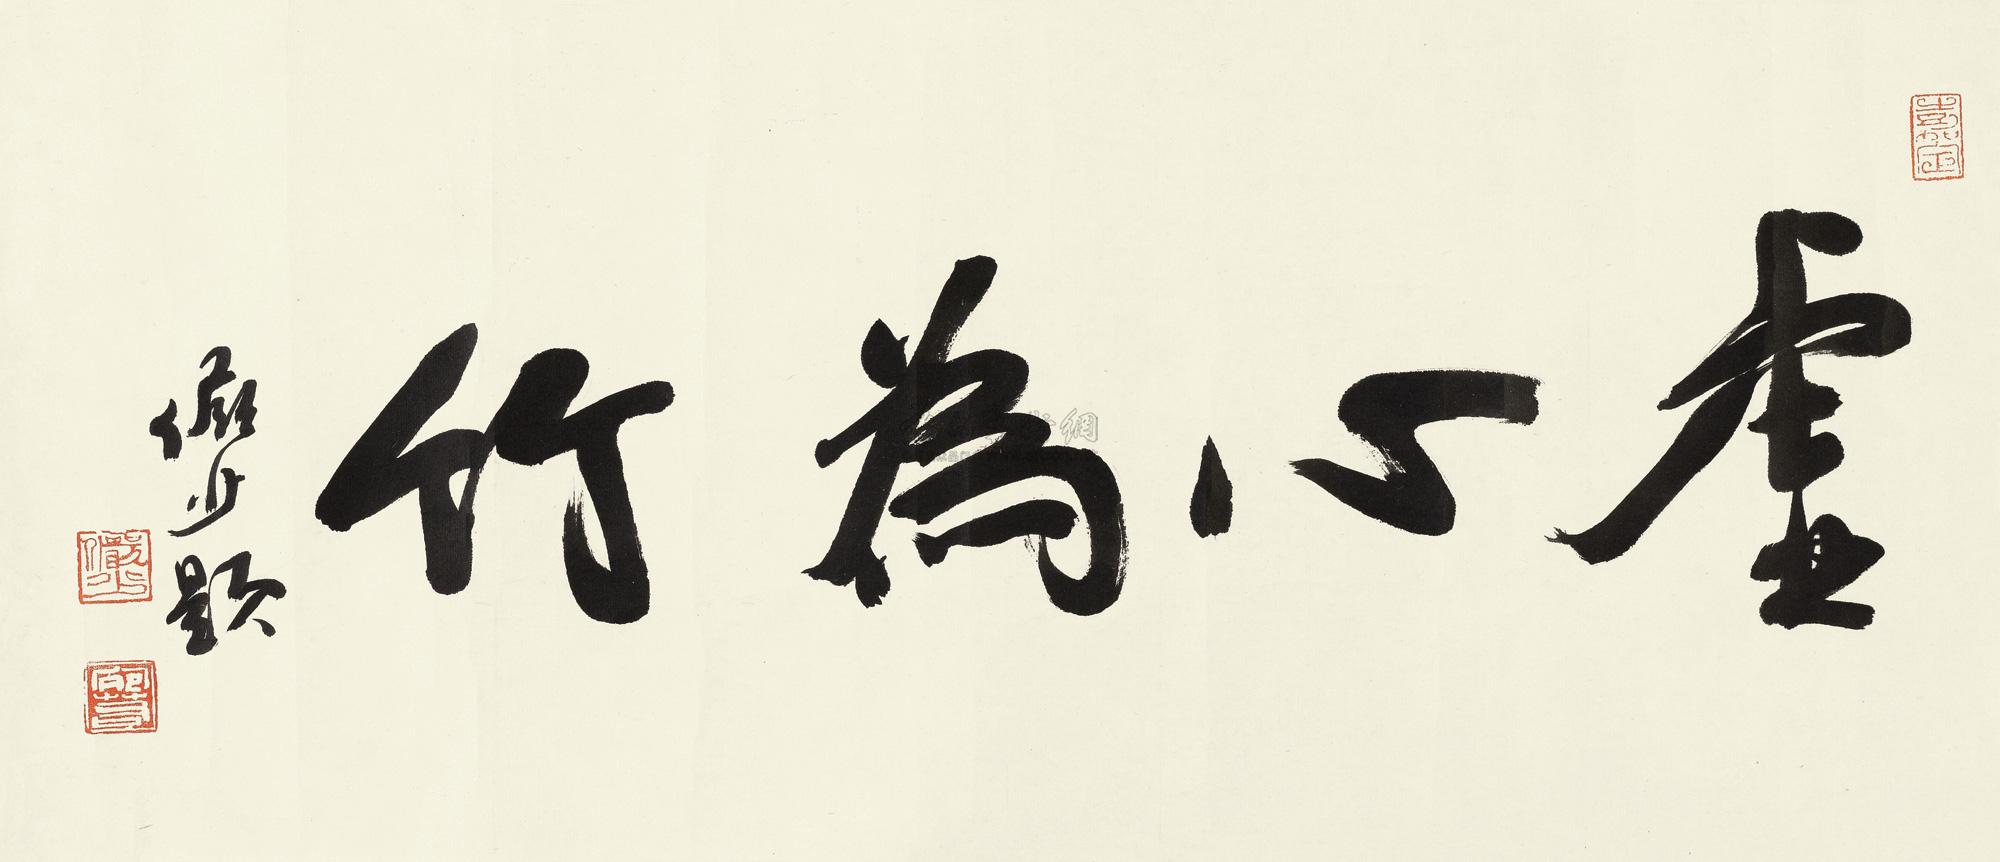 虛心為竹
儼少題